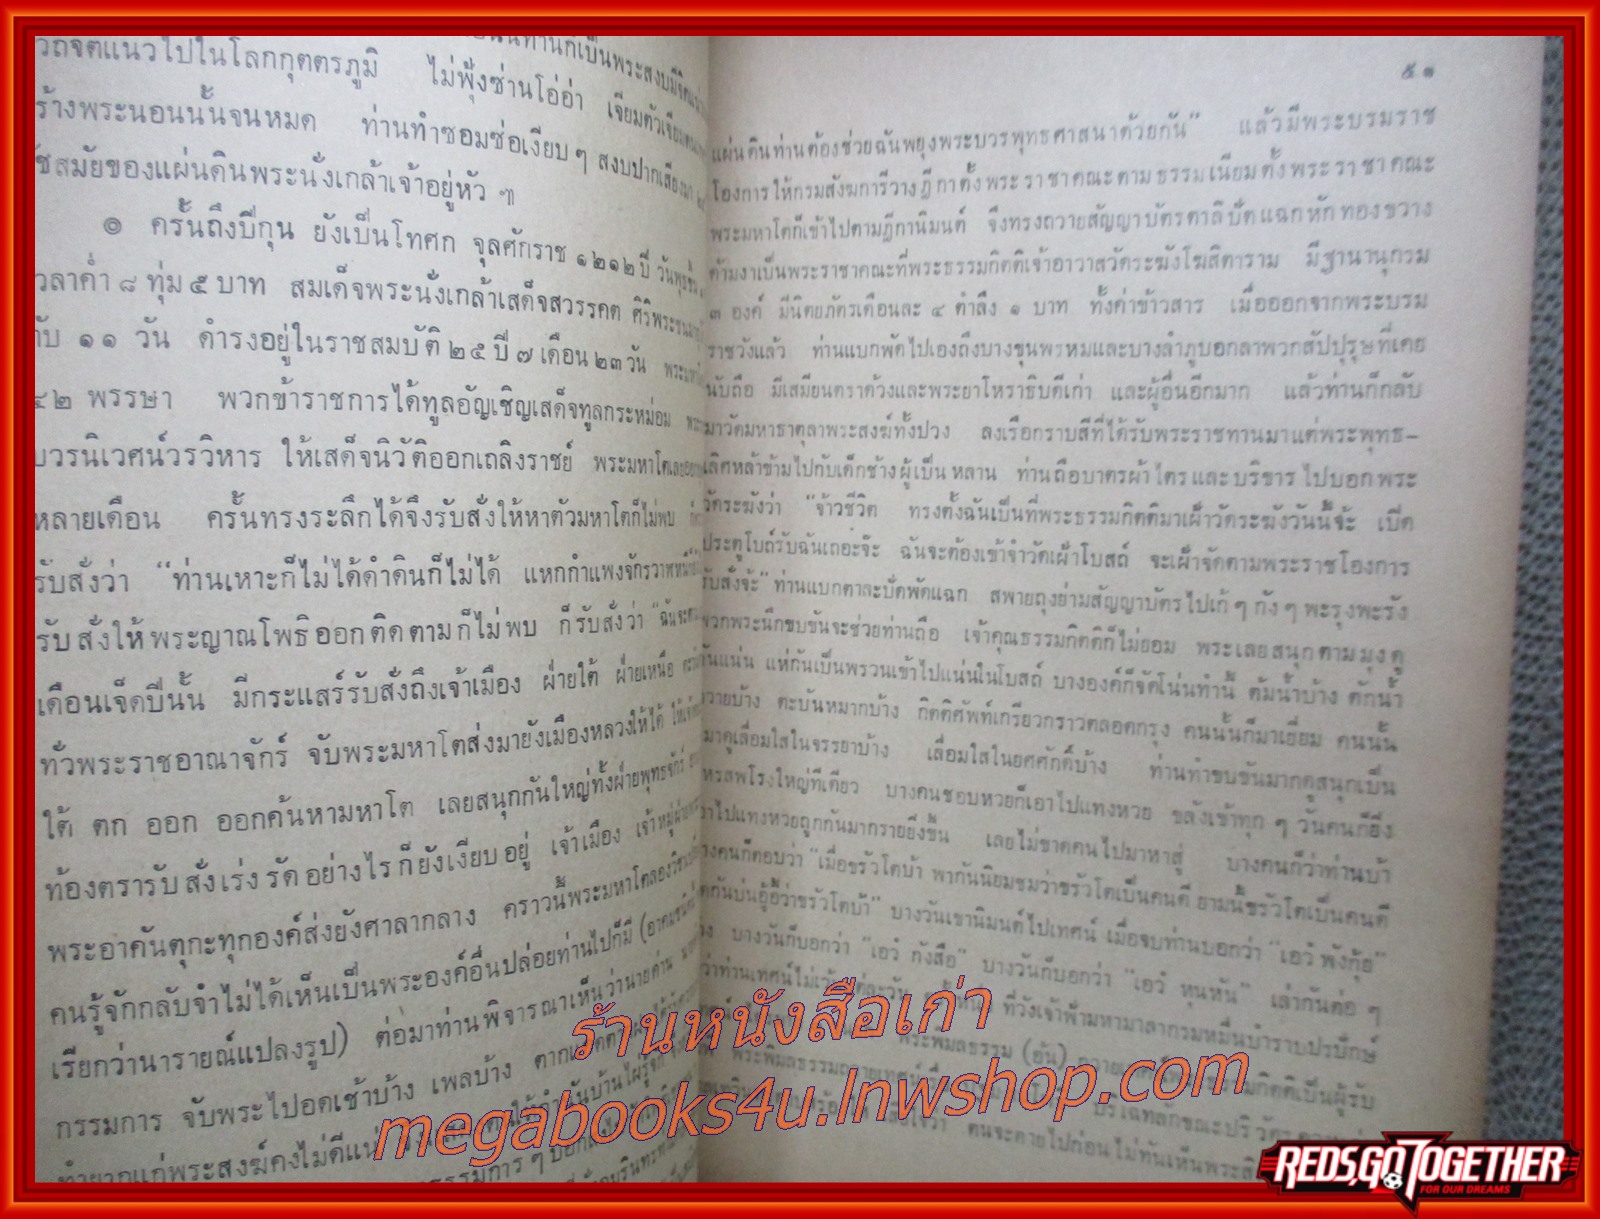 วถจตแนวไปในโลกกุตตรภูมิ ไม่ฟุ้งซ่านโอ่อ่า เจียมตัวเจียมตน
ร้างพระนอนนั้นจนหมด ท่านทำซอมซ่อเงียบๆ สงบปากเสียง
สมัยของแผ่นดินพระนั่งเกล้าเจ้าอยู่หัว ฯ
๏ ครั้นถึงปีกุน ยังเป็นโทศก จุลศักราช ๑๒๑๒ ปี วันพุธขึ้น
วลาค่ำ ๘ ทุ่ม ๕ บาท สมเด็จพระนั่งเกล้าเสด็จสวรรคต ศิริพระชนมายุ
กับ ๑๑ วัน ดำรงอยู่ในราชสมบัติ ๒๕ ปี ๗ เดือน ๒๓ วัน
๔๒ พรรษา พวกข้าราชการได้ทูลอัญเชิญเสด็จทูลกระหม่อม
บวรนิเวศน์วรวิหาร ให้เสด็จนิวัติออกเถลิงราชย์ พระมหาโตเลยออก
หลายเดือน ครั้นทรงระลึกได้จึงรับสั่งให้หาตัวมหาโตก็ไม่พบ
รับสั่งว่า “ท่านเหาะก็ไม่ได้ดำดินก็ไม่ได้ แหกกำแพงจักรวาฬหนี
รับสั่งให้พระญาณโพธิออกติดตามก็ไม่พบ ก็รับสั่งว่า “ฉันจะ
เดือนเจ็ดปีนั้น มีกระแสร์รับสั่งถึงเจ้าเมือง ฝ่ายใต้ ฝ่ายเหนือ
ทั่วพระราชอาณาจักร์ จับพระมหาโตส่งมายังเมืองหลวงให้ได้
ใต้ ตก ออก ออกค้นหามหาโต เลยสนุกกันใหญ่ทั้งฝ่ายพุทธจักร์
ท้องตรารับสั่งเร่งรัดอย่างไรก็ยังเงียบอยู่ เจ้าเมือง เจ้าหมู่
พระอาคันตุกะทุกองค์ส่งยังศาลากลาง คราวนี้พระมหาโตลอง
คนรู้จักกลับจำไม่ได้เห็นเป็นพระองค์อื่นปล่อยท่านไปก็มี
เรียกว่านารายณ์แปลงรูป) ต่อมาท่านพิจารณาเห็นว่านายด่าน
กรรมการ จับพระไปอดเช้าบ้าง เพลบ้าง
ทำยากแก่พระสงฆ์คงไม่ดีแน่
๕๑
แผ่นดินท่านต้องช่วยฉันพยุงพระบวรพุทธศาสนาด้วยกัน” แล้วมีพระบรมราช
โองการให้กรมสังฆการีวางฎีกาตั้งพระราชาคณะตามธรรมเนียมตั้งพระราชาคณะ
พระมหาโตก็เข้าไปตามฎีกานิมนต์ จึงทรงถวายสัญญาบัตรตาลิปัตแฉกหักทองขวาง
ด้ามงาเป็นพระราชาคณะที่พระธรรมกิตติเจ้าอาวาสวัดระฆังโฆสิตาราม มีฐานานุกรม
๓ องค์ มีนิตยภัตรเดือนละ ๔ ตำลึง ๑ บาท ทั้งค่าข้าวสาร เมื่อออกจากพระบรม
ราชวังแล้ว ท่านแบกพัดไปเองถึงบางขุนพรหมและบางลำภูบอกลาพวกสัปปุรุษที่เคย
นับถือ มีเสมียนตราด้วงและพระยาโหราธิบดีเก่า และผู้อื่นอีกมาก แล้วท่านก็กลับ
มาวัดมหาธาตุลาพระสงฆ์ทั้งปวง ลงเรือกราบสีที่ได้รับพระราชทานมาแต่พระพุทธ-
เลิศหล้าข้ามไปกับเด็กช้างผู้เป็นหลาน ท่านถือบาตรผ้าไตรและบริขารไปบอกพระ
วัดระฆังว่า “จ้าวชีวิต ทรงตั้งฉันเป็นที่พระธรรมกิตติมาเฝ้าวัดระฆังวันนี้จ้ะ เปิด
ประตูโบถ์รับฉันเถอะจ๊ะ ฉันจะต้องเข้าจำวัดเฝ้าโบสถ์ จะเฝ้าจัดตามพระราชโองการ
รับสั่งจ้ะ” ท่านแบกตาละปัดพัดแฉก สพายถุงย่ามสัญญาบัตรไปเก้ๆ กังๆ พะรุงพะรัง
พวกพระนึกขบขันจะช่วยท่านถือ เจ้าคุณธรรมกิตติก็ไม่ยอม พระเลยสนุกตามมุงดู
กันแน่น แห่กันเป็นพรวนเข้าไปแน่นในโบสถ์ บางองค์ก็จัดโน่นทำนี้ ต้มน้ำบ้าง ตักน้ำ
ถวายบ้าง ตะบันหมากบ้าง กิตติศัพท์เกรียวกราวตลอดกรุง คนนั้นก็มาเยี่ยม คนนั้น
มาดูเลื่อมใสในจรรยาบ้าง เลื่อมใสในยศศักดิ์บ้าง ท่านทำขบขันมากดูสนุกเป็น
หรสพโรงใหญ่ทีเดียว บางคนชอบหวยก็เอาไปแทงหวย ขลังเข้าทุกๆ วันคนก็ยิ่ง
เอาไปแทงหวยถูกกันมากรายยิ่งขึ้น เลยไม่ขาดคนไปมาหาสู่ บางคนก็ว่าท่านบ้า
บางคนก็ตอบว่า “เมื่อขรัวโตบ้า พากันนิยมชมว่าขรัวโตเป็นคนดี ยามนี้ขรัวโตเป็นคนดี
ตกกันบ่นอู้อี้ว่าขรัวโตบ้า” บางวันเขานิมนต์ไปเทศน์ เมื่อจบท่านบอกว่า “เอวํ พังกุ้ย”
บางวันก็บอกว่า “เอวํ กังสือ” บางวันก็บอกว่า “เอวํ หุนหัน” เล่ากันต่อๆ
ว่าท่านเทศน์ไม่เว้นแต่ละวัน ที่วังเจ้าฟ้ามหามาลากรมหมื่นบำราบปรปักษ์
พระพิมลธรรม (อ้น) ถวายเทศน์ พระธรรมกิตติเป็นผู้รับ
พระพิมลธรรมถวายเทศน์ บริเฉทลักขณะปริวัตร
คนจะตายไปก่อนไม่ทันเห็นพระ
ร้านหนังสือเก่า
megabooks4u.lnwshop.com
REDS,GO TOGETHER
FOR OUR DREAMS